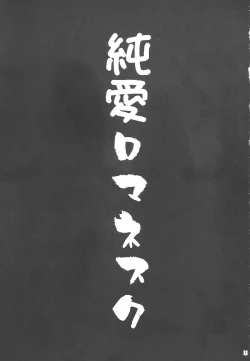 純愛ロマネスク